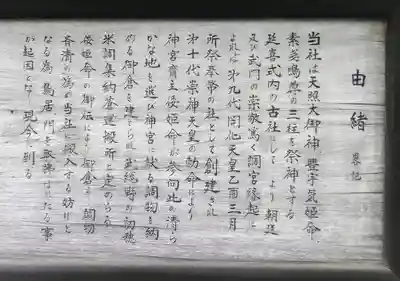 由緒 畧記
当社は天照大御神 豊宇気姫命
素盞嗚尊の三柱を祭神とする
延喜式内の古社にして より 朝廷
及び武門の崇敬篤く調宮縁起に
よれば 第九代 開化天皇乙酉三月
所祭奉幣の社として創建され
第十代崇神天皇の勅命により
神宮斎主倭姫命が参向此の清ら
かな地を選び神宮に献る調物を納
める御倉を建てられ武総野の初穂
米調集納蓄運搬所と定めらる
倭姫命の御伝により御倉より調物
斉清の為め当社に搬入する妨げと
なる為 鳥居 門を取拂はれたる事
が起因となり現今に到る